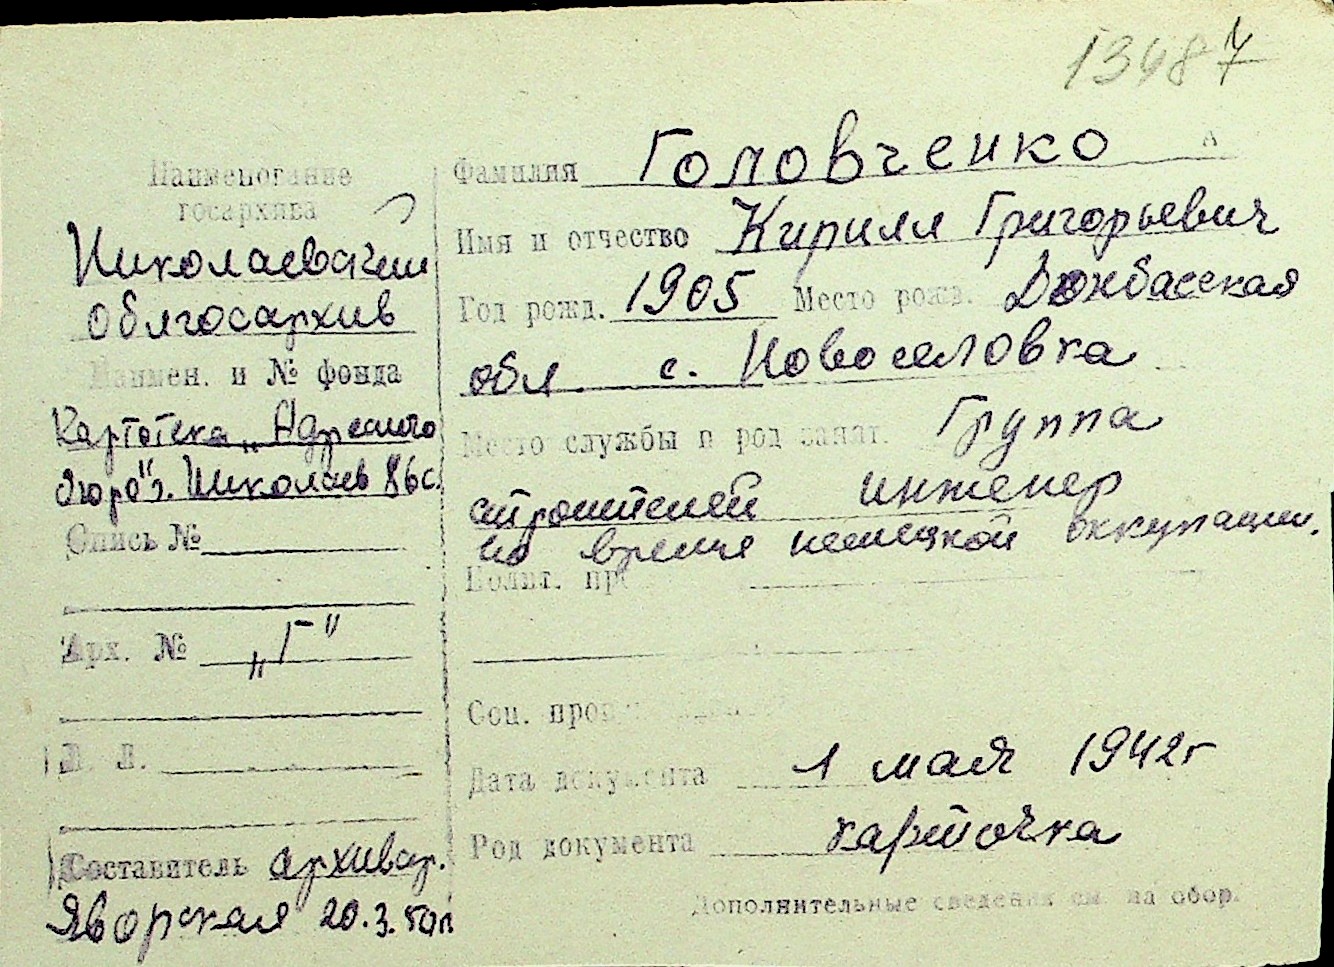 13487
Наименование
госархива
Николаевский
облгосархив
Наимен. и № фонда
Картотека „Адресного
бюро" г. Николаев 86с.
Опись №
Арх. № „Г"
Л. Л.
Составитель архивар.
Яворская 20.3.50г
Фамилия Головченко
Имя и отчество Кирилл Григорьевич
Год рожд. 1905 Место рожд. Донбасская
обл. с. Новоселовка
Место службы и род занят. Группа
строителей инженер
во время немецкой оккупации.
Полит. пр
Соц. прои
Дата документа 1 мая 1942г
Род документа карточка
Дополнительные сведения см. на обор.